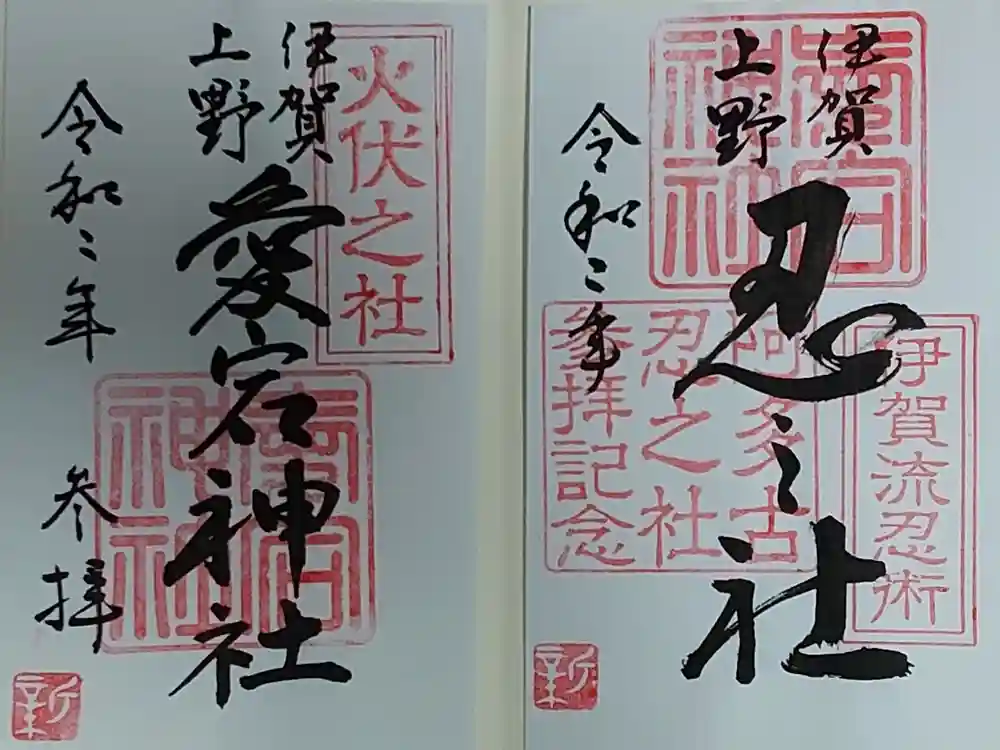 伊忍
賀
上野
忍之社
令和二年
愛宕神社
阿多古
忍之社
参拝記念
伊賀流忍術
新
伊賀
上野
愛宕神社
令和二年
参拝
火伏之社
愛宕神社
新